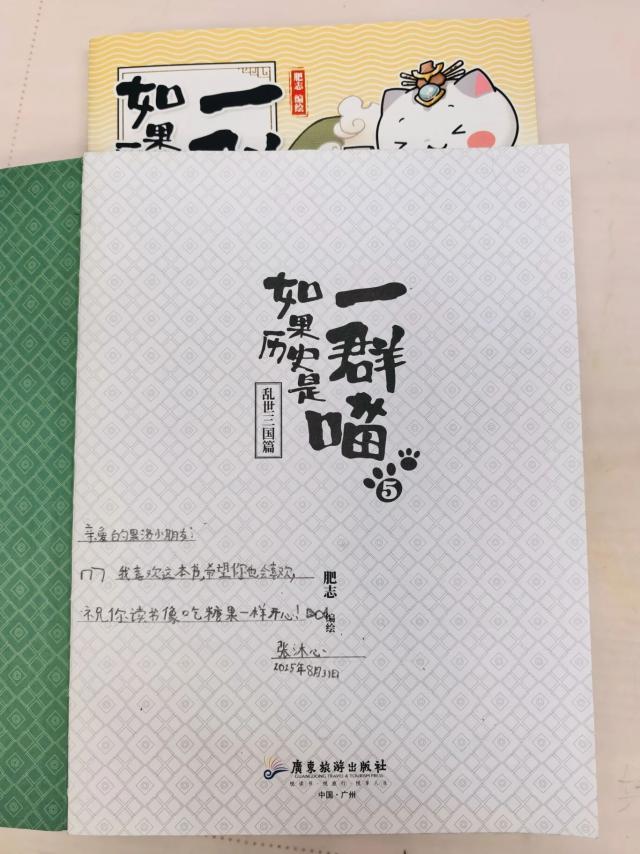 肥志 编绘
如果
一
如果历史是
一群喵
乱世三国篇
5
亲爱的果洛小朋友:
我喜欢这本书,希望你也会喜欢,
祝你读书像吃糖果一样开心!
张沐心
2025年8月31日
肥志 编绘
廣東旅游出版社
GUANGDONG TRAVEL & TOURISM PRESS
悦读书·悦旅行·悦享人生
中国·广州